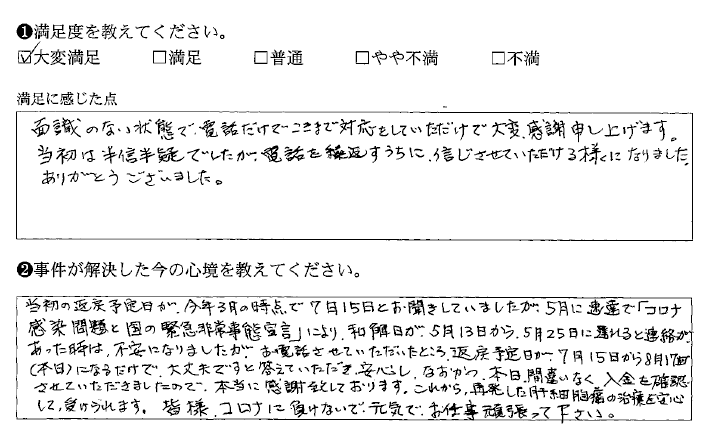 ❶満足度を教えてください。
☑大変満足 □満足 □普通 □やや不満 □不満
満足に感じた点
面識のない状態で、電話だけでここまで対応をしていただけで大変、感謝申し上げます。
当初は半信半疑でしたが、電話を繰返すうちに、信じさせていただける様になりました。
ありがとうございました。
❷事件が解決した今の心境を教えてください。
当初の返戻予定日が、今年3月の時点で7月15日とお聞きしていましたが、5月に急遽で「コロナ
感染問題と国の緊急非常事態宣言」により、和解日が、5月13日から、5月25日に遅れると連絡が
あった時は、不安になりましたが、お電話させていただいたところ、返戻予定日が、7月15日から8月17日
(本日)になるだけで、大丈夫ですと答えていただき、安心し、なおかつ、本日、間違いなく、入金を確認
させていただきましたので、本当に感謝しております。これから、再発した肝細胞癌の治療を安心
して、受けられます。皆様、コロナに負けないで、元気で、お仕事頑張って下さい。